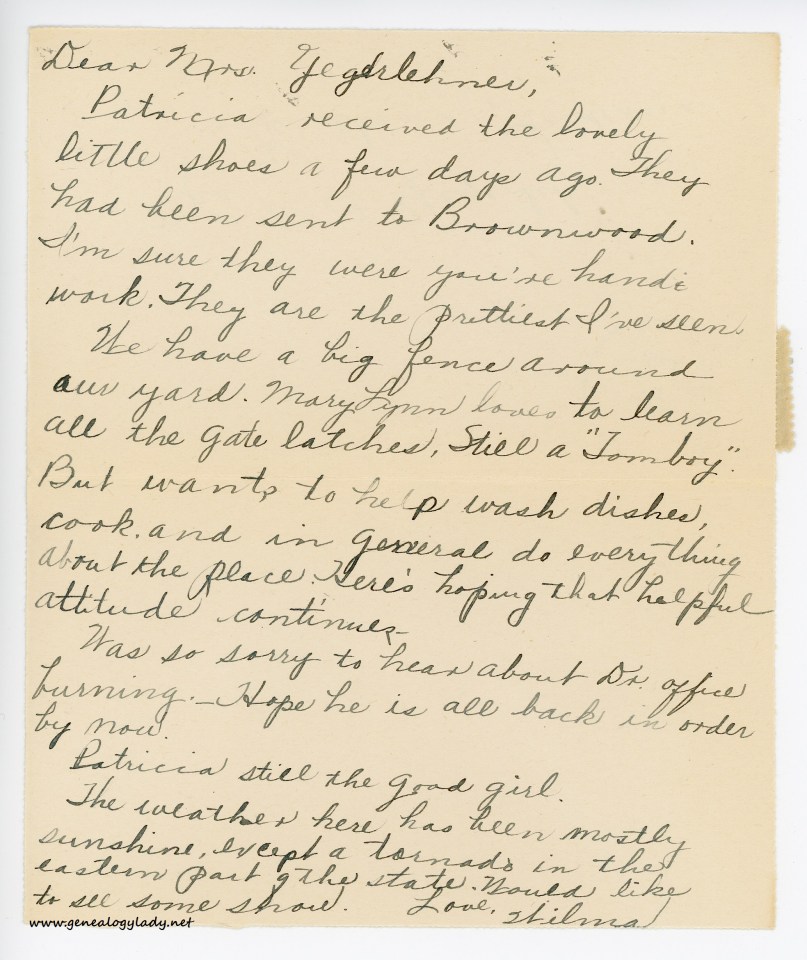 Dear Mrs. Yegerlehner,
Patricia received the lovely
little shoes a few days ago. They
had been sent to Brownwood.
I'm sure they were you're handi
work. They are the prettiest I've seen.
We have a big fence around
our yard. Mary Lynn loves to learn
all the gate latches, Still a "Tomboy".
But wants to help wash dishes,
cook. and in general do everything
about the place. Here's hoping that helpful
attitude continues–
Was so sorry to hear about Dr. office
burning. – Hope he is all back in order
by now.
Patricia still the good girl.
The weather here has been mostly
sunshine, except a tornado in the
eastern part of the state. Would like
to see some snow. Love, Wilma
www.genealogylady.net